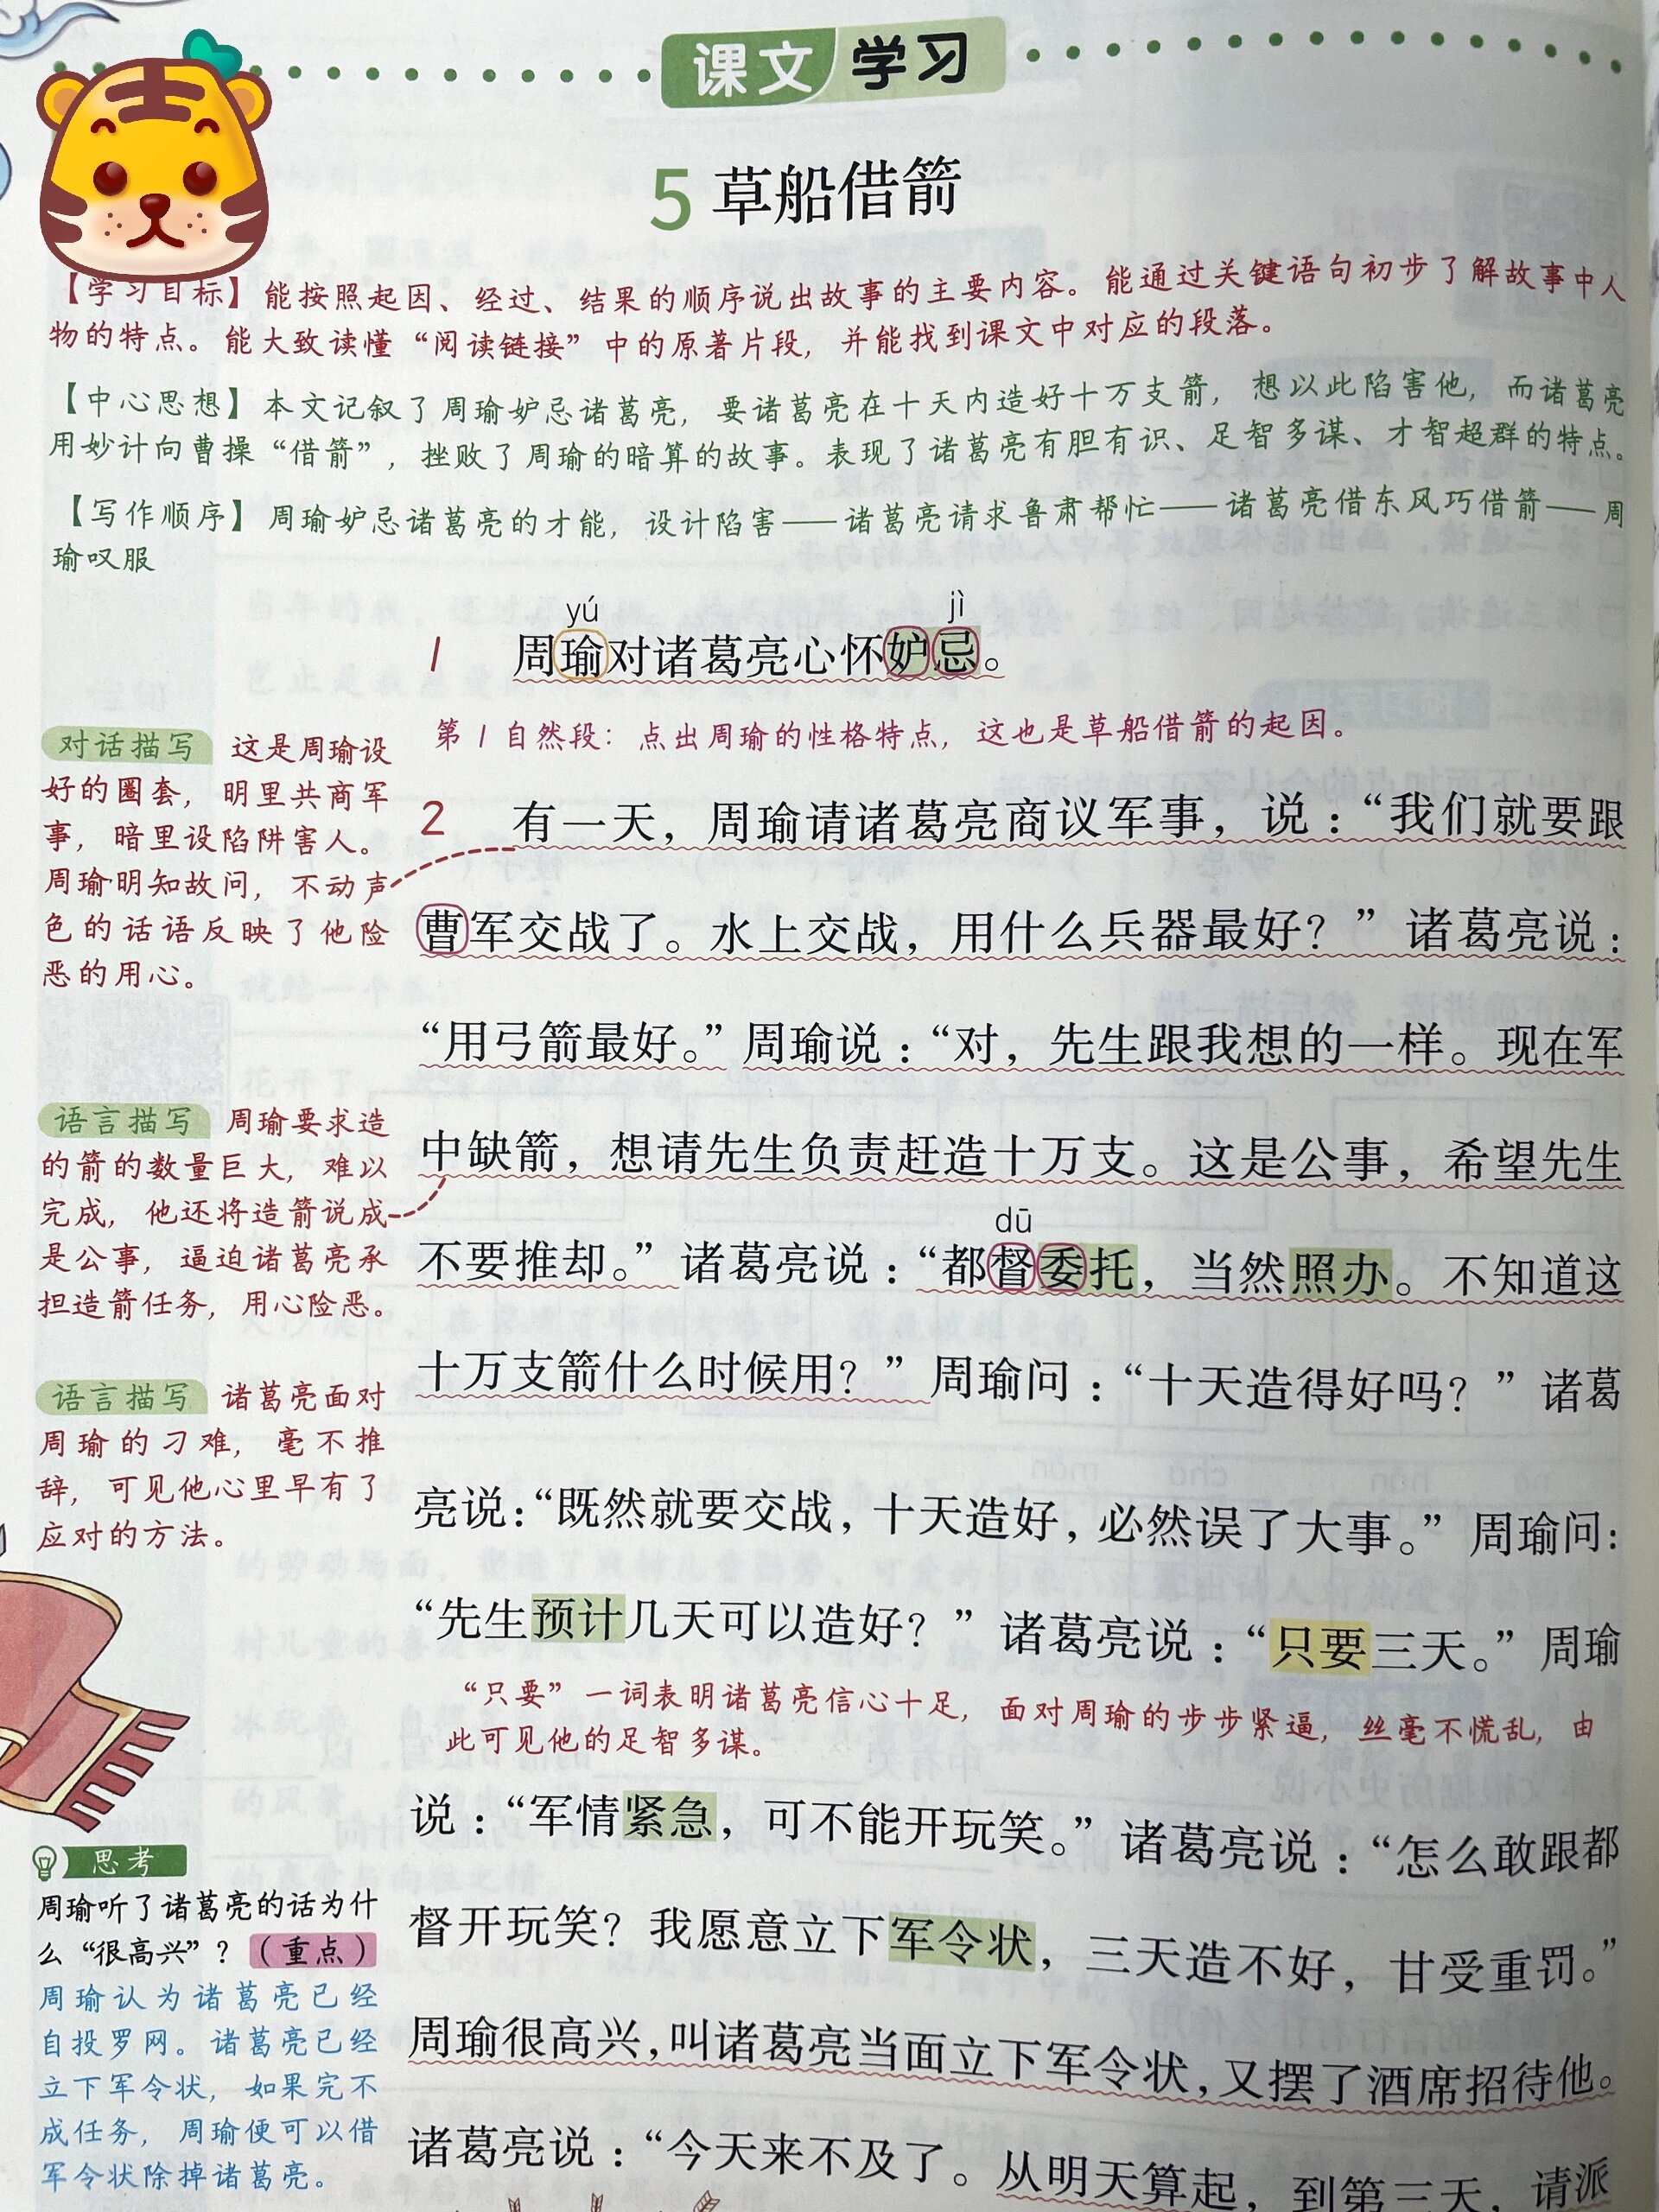 课文学习
5 草船借箭
【学习目标】能按照起因、经过、结果的顺序说出故事的主要内容。能通过关键语句初步了解故事中人
物的特点。能大致读懂“阅读链接”中的原著片段，并能找到课文中对应的段落。
【中心思想】本文记叙了周瑜妒忌诸葛亮，要诸葛亮在十天内造好十万支箭，想以此陷害他，而诸葛亮
用妙计向曹操“借箭”，挫败了周瑜的暗算的故事。表现了诸葛亮有胆有识、足智多谋、才智超群的特点。
【写作顺序】周瑜妒忌诸葛亮的才能，设计陷害——诸葛亮请求鲁肃帮忙——诸葛亮借东风巧借箭——周
瑜叹服
yú jì
1 周瑜对诸葛亮心怀妒忌。
第1自然段：点出周瑜的性格特点，这也是草船借箭的起因。
对话描写 这是周瑜设
好的圈套，明里共商军
事，暗里设陷阱害人。
周瑜明知故问，不动声
色的话语反映了他险
恶的用心。
2 有一天，周瑜请诸葛亮商议军事，说：“我们就要跟
曹军交战了。水上交战，用什么兵器最好？”诸葛亮说：
“用弓箭最好。”周瑜说：“对，先生跟我想的一样。现在军
中缺箭，想请先生负责赶造十万支。这是公事，希望先生
dū
不要推却。”诸葛亮说：“都督委托，当然照办。不知道这
十万支箭什么时候用？”周瑜问：“十天造得好吗？”诸葛
亮说：“既然就要交战，十天造好，必然误了大事。”周瑜问：
“先生预计几天可以造好？”诸葛亮说：“只要三天。”周瑜
“只要”一词表明诸葛亮信心十足，面对周瑜的步步紧逼，丝毫不慌乱，由
此可见他的足智多谋。
说：“军情紧急，可不能开玩笑。”诸葛亮说：“怎么敢跟都
督开玩笑？我愿意立下军令状，三天造不好，甘受重罚。”
周瑜很高兴，叫诸葛亮当面立下军令状，又摆了酒席招待他。
诸葛亮说：“今天来不及了。从明天算起，到第三天，请派
语言描写 周瑜要求造
的箭的数量巨大，难以
完成，他还将造箭说成
是公事，逼迫诸葛亮承
担造箭任务，用心险恶。
语言描写 诸葛亮面对
周瑜的刁难，毫不推
辞，可见他心里早有了
应对的方法。
思考
周瑜听了诸葛亮的话为什
么“很高兴”？（重点）
周瑜认为诸葛亮已经
自投罗网。诸葛亮已经
立下军令状，如果完不
成任务，周瑜便可以借
军令状除掉诸葛亮。